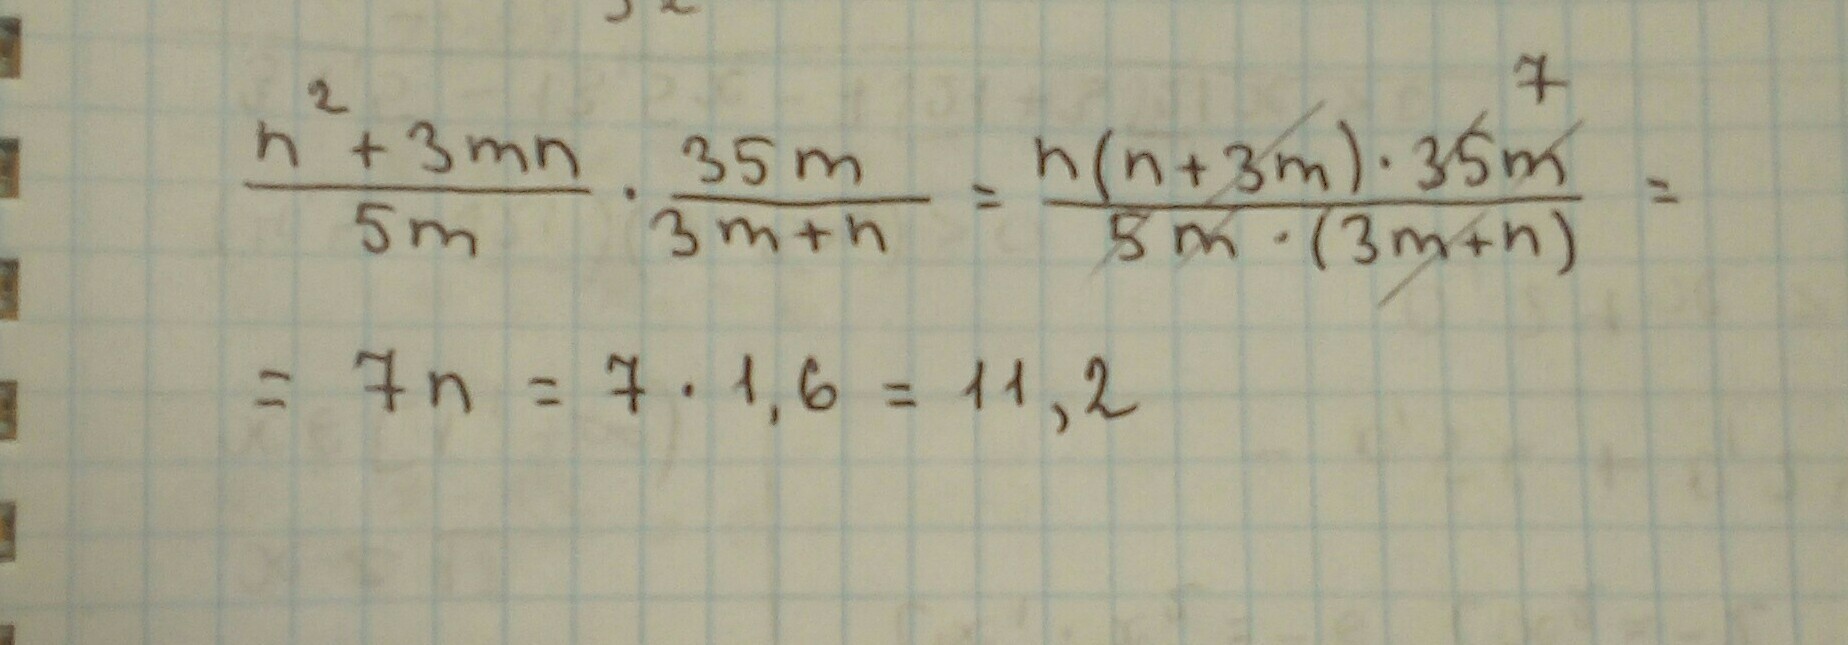 (n² + 3mn)/(5m) · (35m)/(3m+n) = (n(n+3m)·35m)/(5m·(3m+n)) = 7
= 7n = 7·1,6 = 11,2